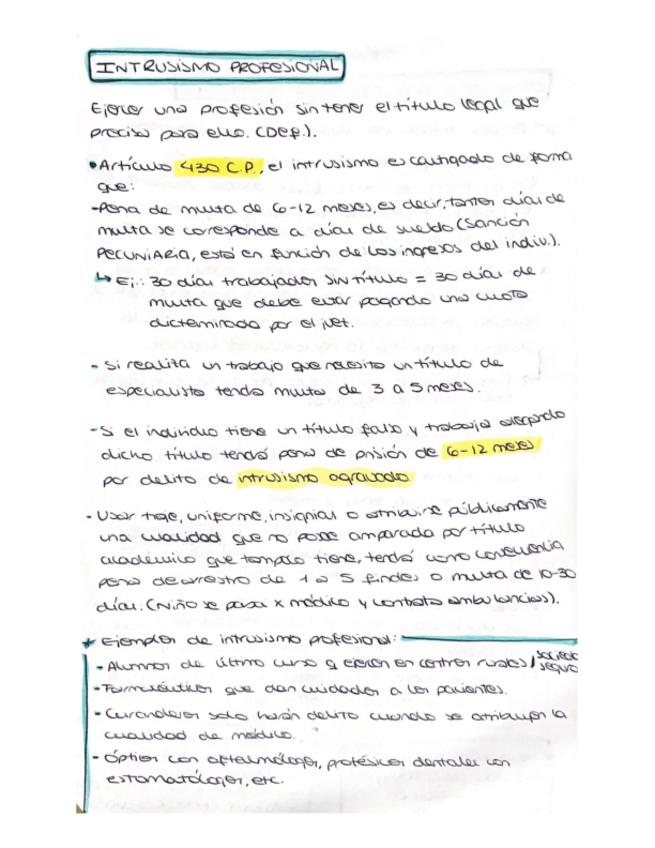 INTRUSISMO PROFESIONAL
Ejercer una profesión sin tener el título legal que
precisa para ello. (Def.).
• Artículo 430 C.P., el intrusismo es castigado de forma
que:
- Pena de multa de 6-12 meses, es decir, tantos días de
multa se corresponde a días de sueldo (Sanción
PECUNIARIA, está en función de los ingresos del indiv.).
↳ Ej.: 30 días trabajador sin título = 30 días de
multa que debe estar pagando una cuota
dictaminada por el juez.
- Si realiza un trabajo que necesita un título de
especialista tendrá multa de 3 a 5 meses.
- Si el individuo tiene un título falso y trabaja alegando
dicho título tendrá pena de prisión de 6-12 meses
por delito de intrusismo agravado
- Usar traje, uniforme, insignias o atribuirse públicamente
una cualidad que no posee amparada por título
académico que tampoco tiene, tendrá como consecuencia
pena de arresto de 1 a 5 findes o multa de 10-30
días. (Niño se pasa x médico y contrata ambulancias).
* Ejemplos de intrusismo profesional:
- Alumnos de último curso q ejercen en centros rurales/ socied
seguro
- Farmacéuticos que dan cuidados a los pacientes.
- Curanderos solo harán delito cuando se atribuyen la
cualidad de médico.
- Ópticos con oftalmólogos, protésicos dentales con
estomatólogos, etc.